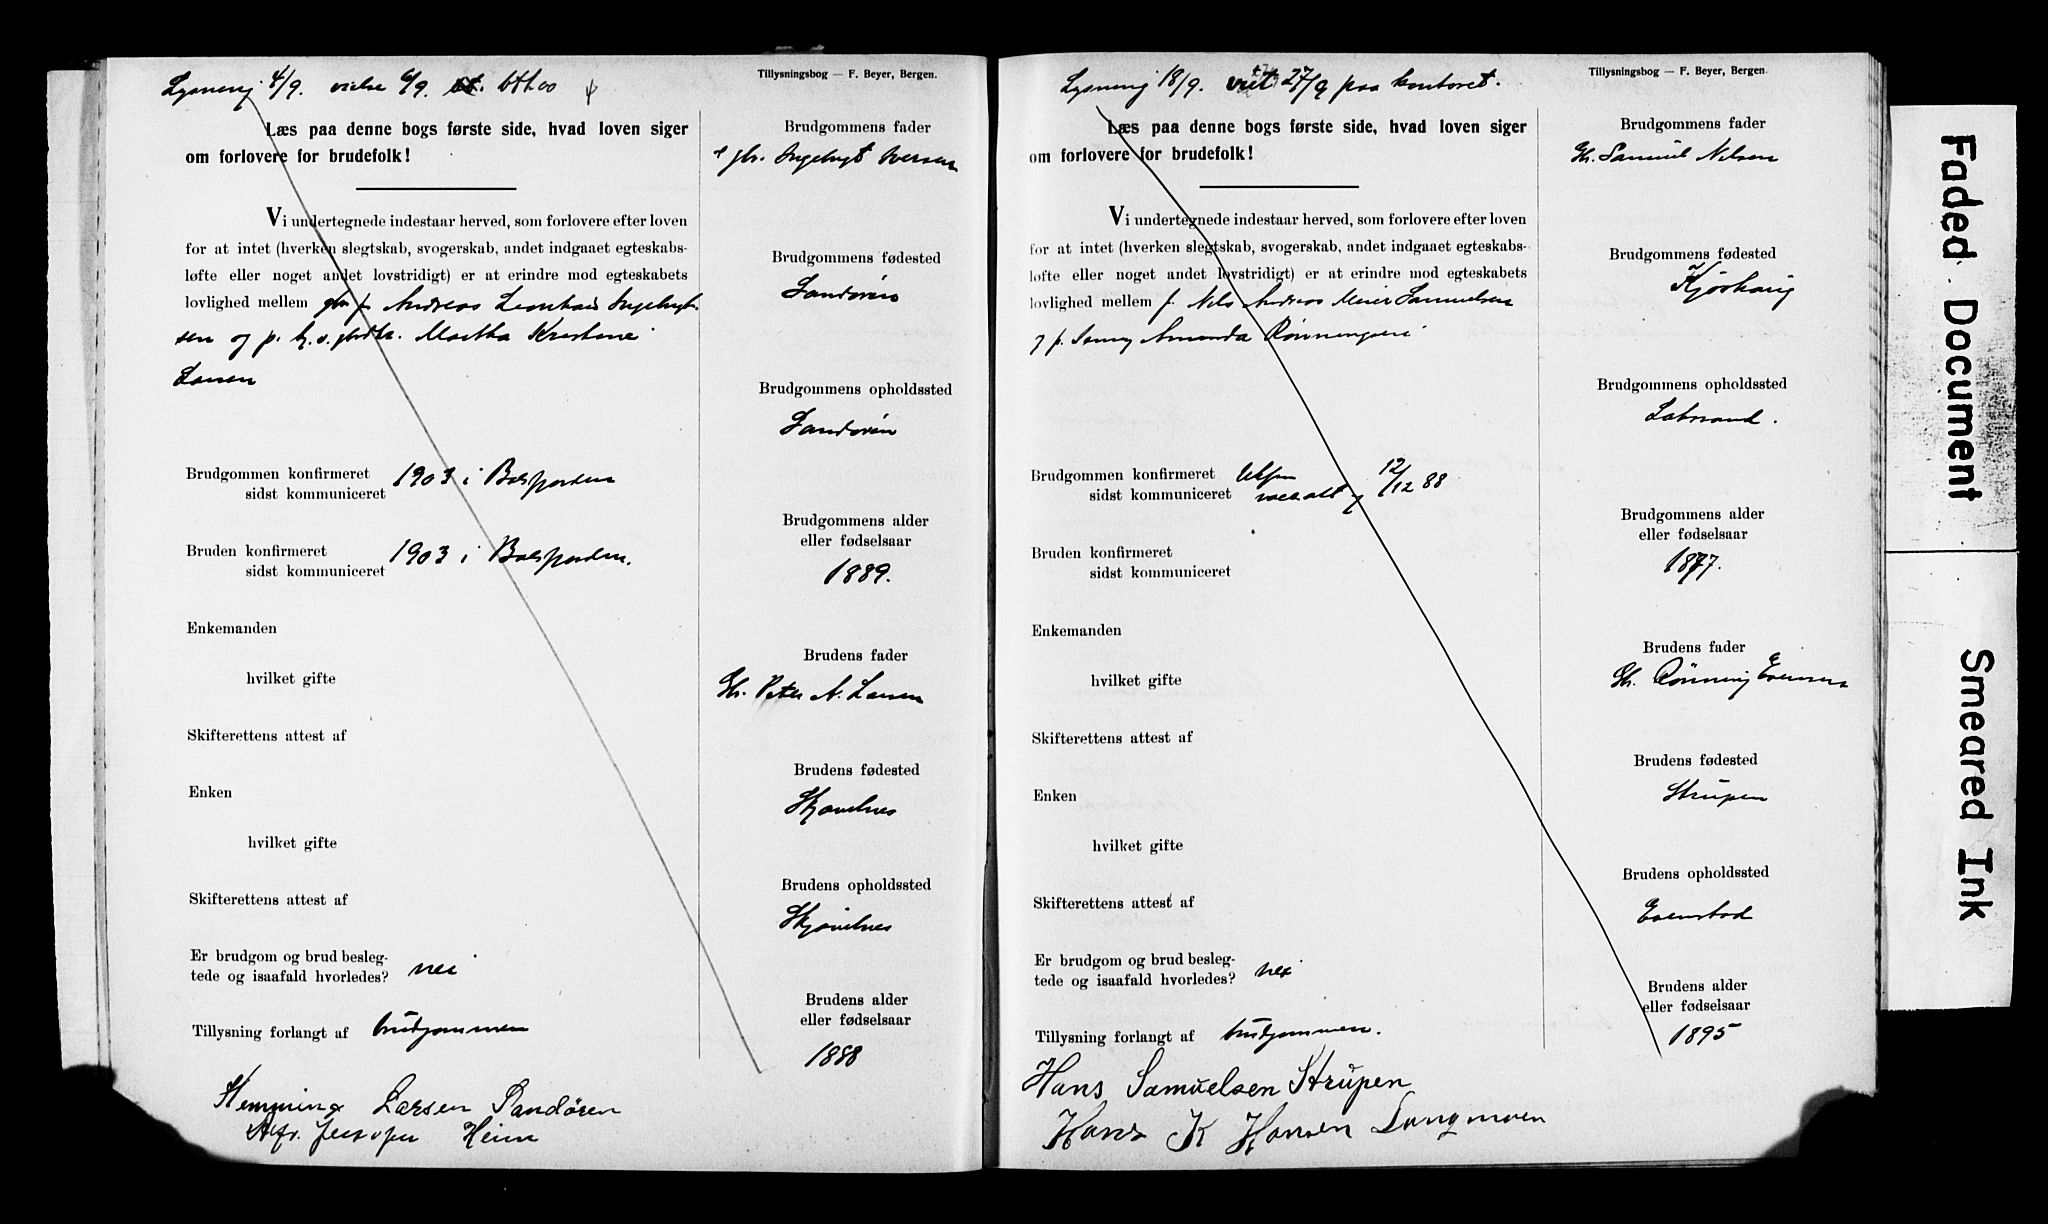 Tillysningsbog — F. Beyer, Bergen.
Lysning 4/9. vielse 6/9.
Læs paa denne bogs første side, hvad loven siger
om forlovere for brudefolk!
Vi undertegnede indestaar herved, som forlovere efter loven
for at intet (hverken slegtskab, svogerskab, andet indgaaet egteskabs-
løfte eller noget andet lovstridigt) er at erindre mod egteskabets
lovlighed mellem Andreas Leonhard Ingebrigt-
sen og p. Martha Kristine
Larsen
Brudgommen konfirmeret 1903 i Balsfjorden
sidst kommuniceret
Bruden konfirmeret 1903 i Balsfjorden.
sidst kommuniceret
Enkemanden
hvilket gifte
Skifterettens attest af
Enken
hvilket gifte
Skifterettens attest af
Er brudgom og brud besleg-
tede og isaafald hvorledes? nei
Tillysning forlangt af brudgommen
Hemming Larsen Sandören
Heim
Brudgommens fader
Ingebrigt Iversen
Brudgommens fødested
Sandøren
Brudgommens opholdssted
Sandøren
Brudgommens alder
eller fødselsaar
1889.
Brudens fader
Gbr. Peter A. Larsen
Brudens fødested
Skjævelnes
Brudens opholdssted
Skjævelnes
Brudens alder
eller fødselsaar
1888
Tillysningsbog — F. Beyer, Bergen
Lysning 18/9. viet 27/9 paa kontoret.
Læs paa denne bogs første side, hvad loven siger
om forlovere for brudefolk!
Vi undertegnede indestaar herved, som forlovere efter loven
for at intet (hverken slegtskab, svogerskab, andet indgaaet egteskabs-
løfte eller noget andet lovstridigt) er at erindre mod egteskabets
lovlighed mellem f. Nils Andreas Meier Samuelsen
og p. Amanda
Brudgommen konfirmeret
sidst kommuniceret 12/12 88
Bruden konfirmeret
sidst kommuniceret
Enkemanden
hvilket gifte
Skifterettens attest af
Enken
hvilket gifte
Skifterettens attest af
Er brudgom og brud besleg-
tede og isaafald hvorledes? nei
Tillysning forlangt af brudgommen.
Hans Samuelsen Strupen
Hans K Hansen Langmoen
Brudgommens fader
Gbr. Samuel Nilsen
Brudgommens fødested
Brudgommens opholdssted
Brudgommens alder
eller fødselsaar
1877.
Brudens fader
Gbr. Rønning Evensen
Brudens fødested
Strupen
Brudens opholdssted
Evenstad
Brudens alder
eller fødselsaar
1895
Faded Document
Smeared Ink